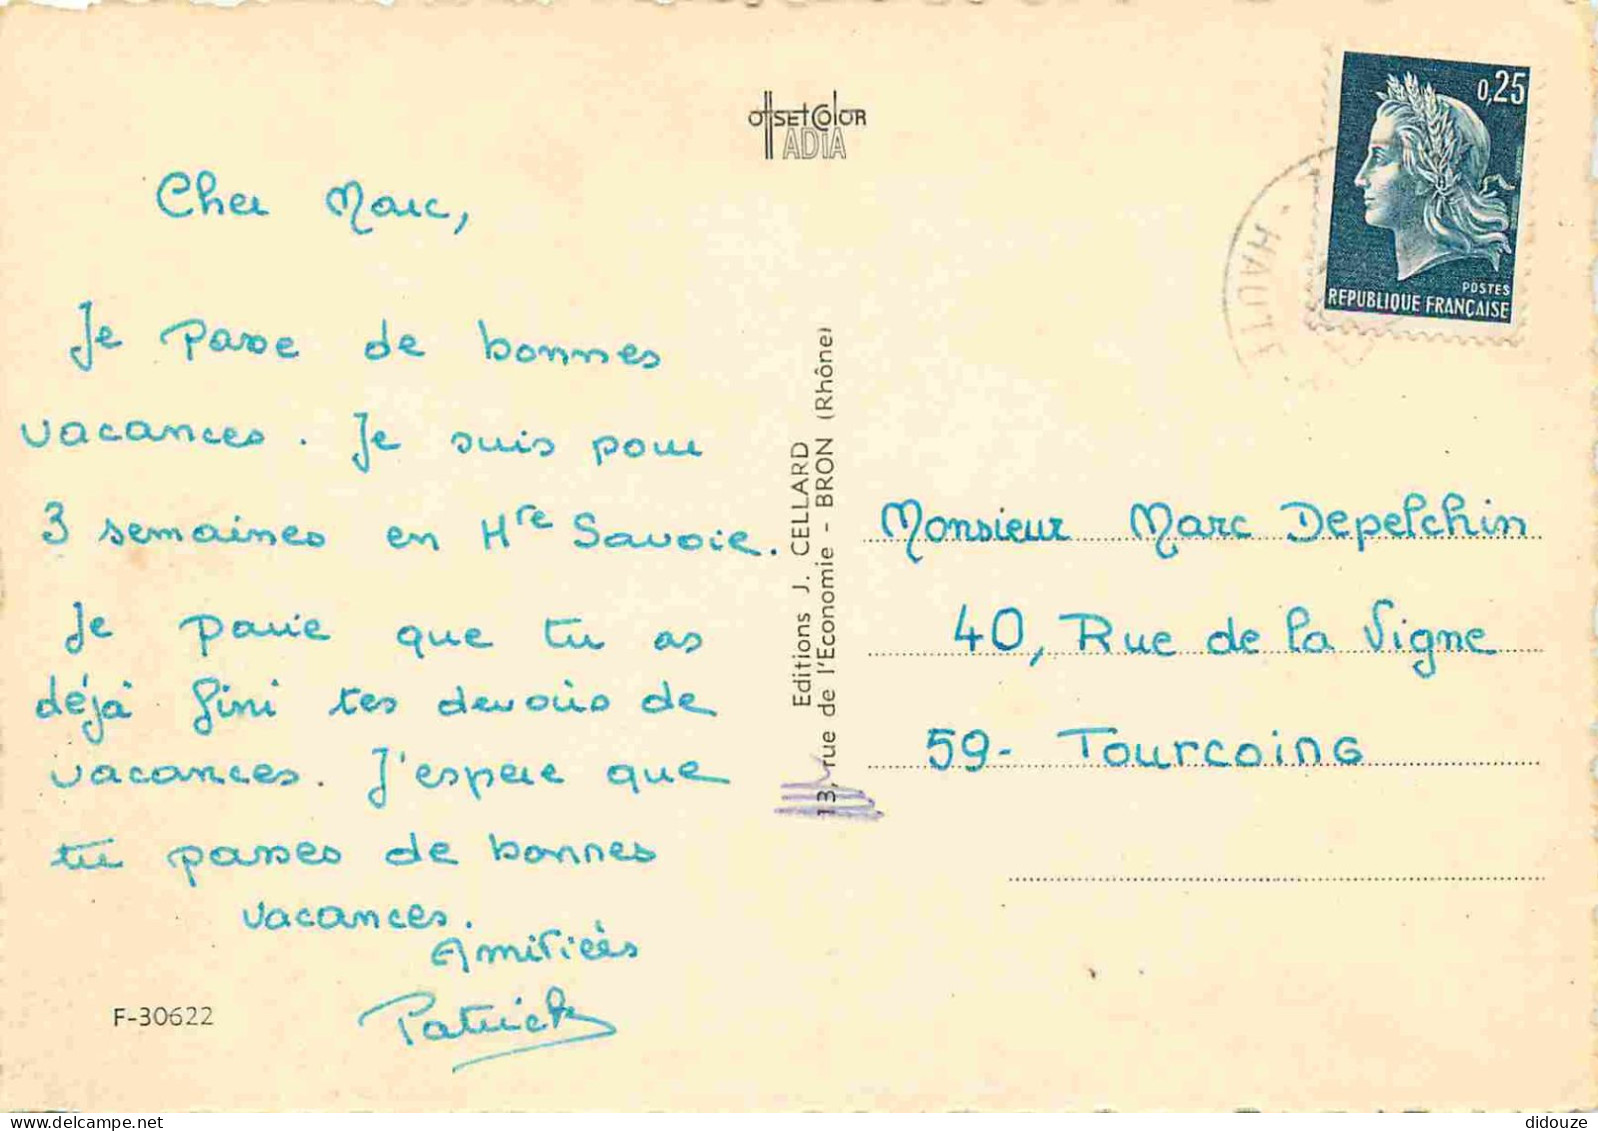 OffsetColor
ADIA
0,25
POSTES
REPUBLIQUE FRANÇAISE
HAUTE
Cher Marc,
Je passe de bonnes
vacances. Je suis pour
3 semaines en Hre Savoie.
Je parie que tu as
déjà fini tes devoirs de
vacances. J'espère que
tu passes de bonnes
vacances.
Amitiés
Patrick
F-30622
Editions J. CELLARD
13, rue de l'Economie - BRON (Rhône)
Monsieur Marc Depelchin
40, Rue de la Vigne
59- Tourcoing
delcampe.net
didouze